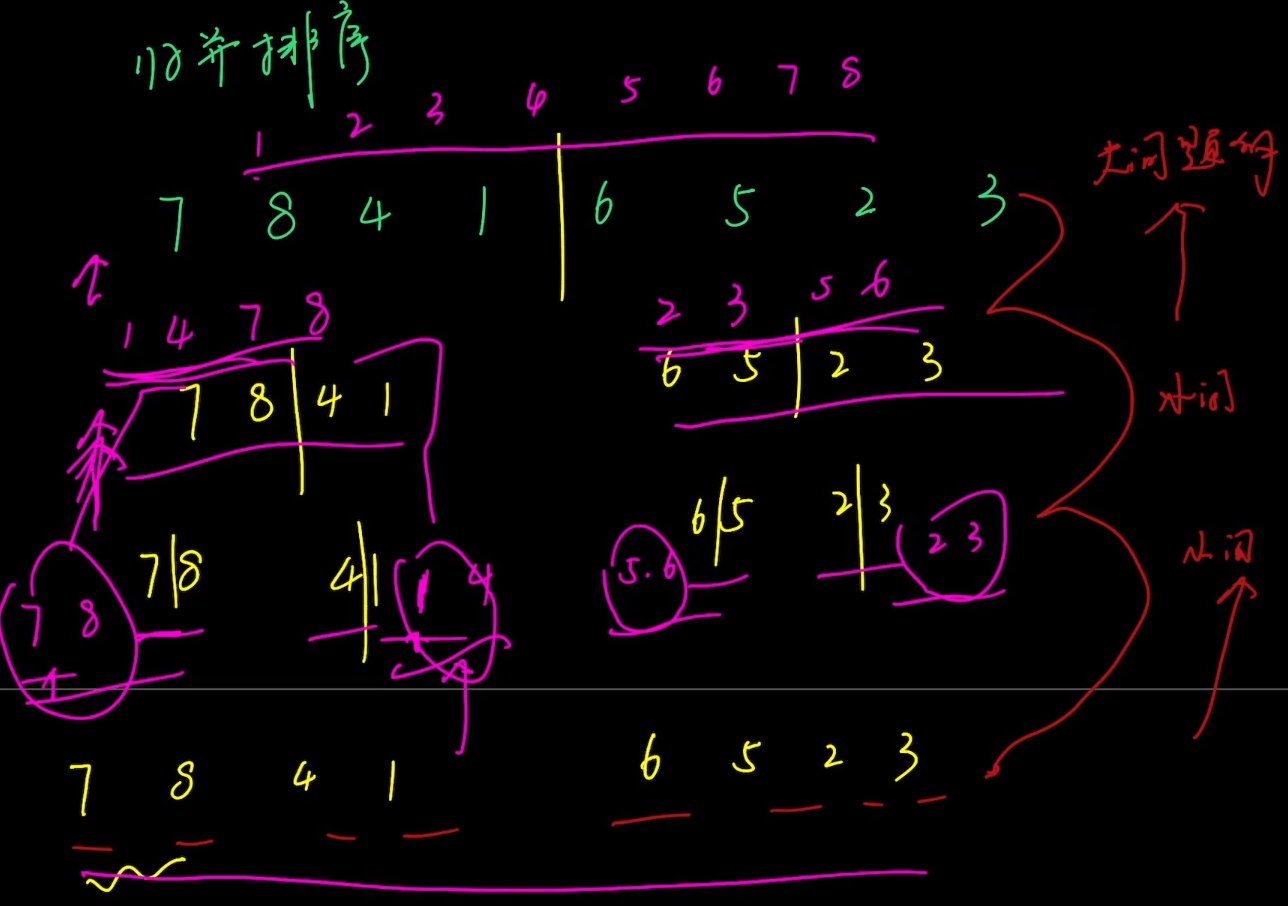 归并排序
1 2 3 4 5 6 7 8
7 8 4 1 6 5 2 3
大问题解
1 4 7 8 2 3 5 6
7 8 4 1 6 5 2 3
小问
7 8 4 1 6 5 2 3
7 8 1 4 5.6 2 3
小问
7 8 4 1 6 5 2 3